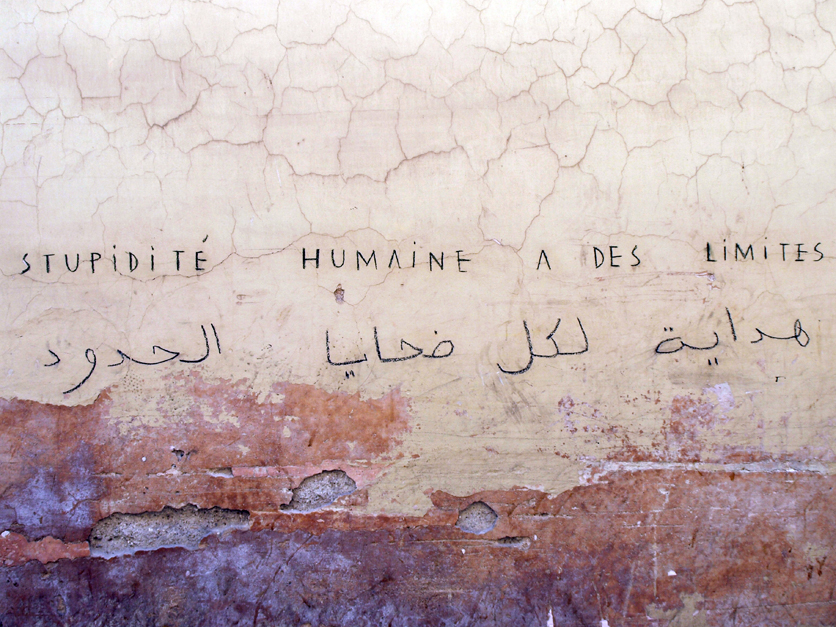 STUPiDiTÉ HUMAiNE A DES LiMiTES
هداية لكل ضحايا الحدود